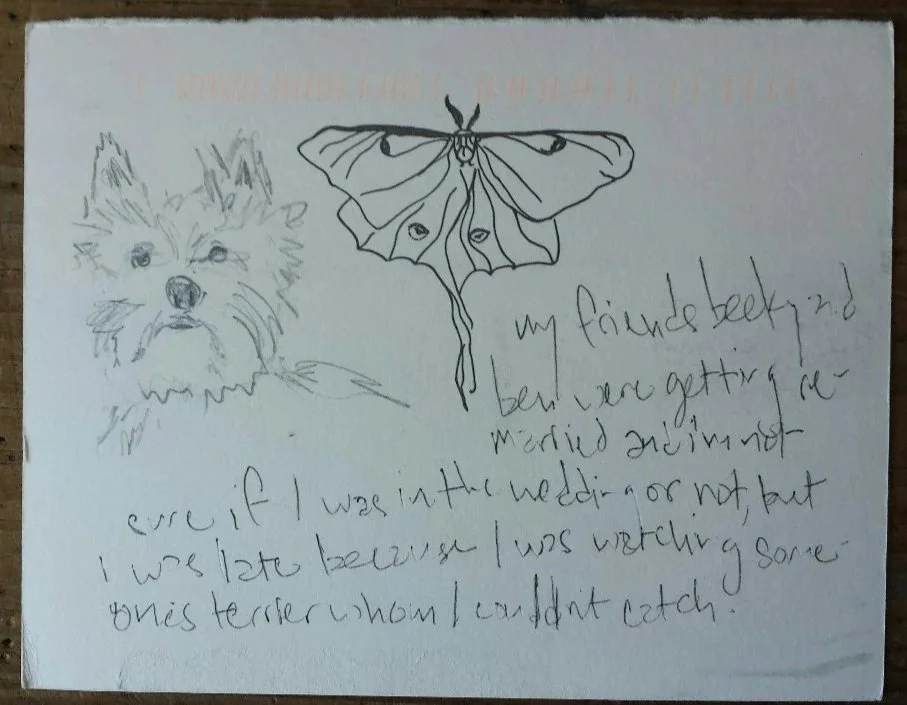 my friends becky and
ben were getting re-
married and i'm not
sure if I was in the wedding or not, but
i was late because I was watching some-
one's terrier whom I couldn't catch.